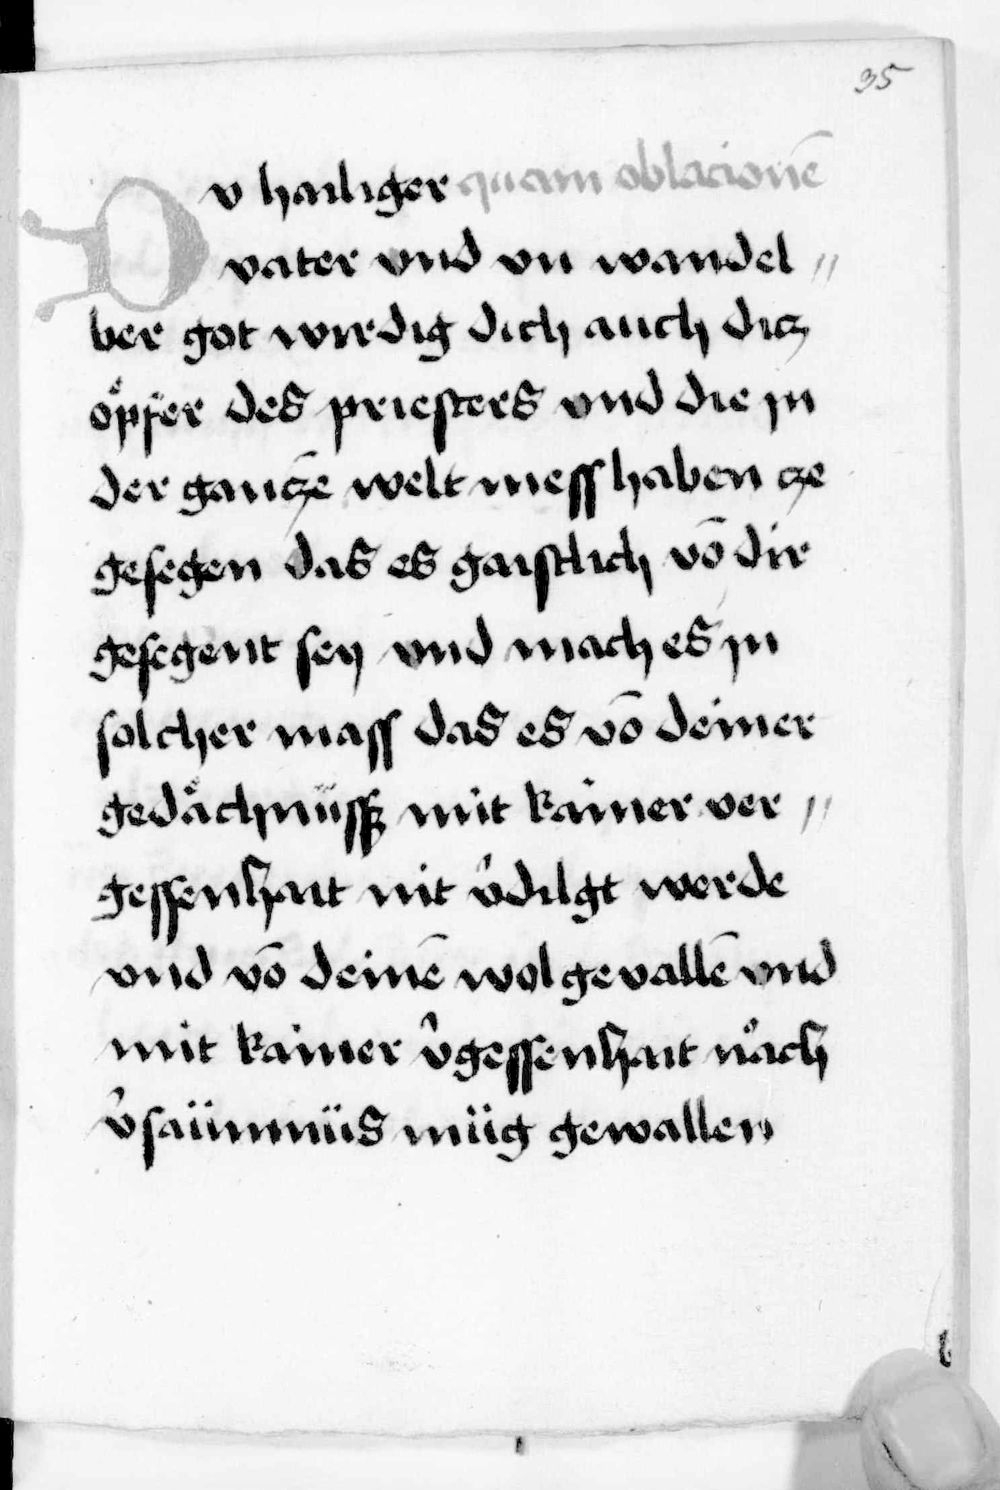 35
Dv hailiger quam oblacionē
vater vnd vn wandel〃
ber got wirdig dich auch dicz
oͤpfer des priesters vnd die in
der gancze welt mess haben cze
gesegen das es gaistlich vō dir
gesegent sey vnd mach es in
solcher mass das es vō deiner
gedaͤchnüssz mit kainer ver〃
gessenhait nit v̉dilgt werde
vnd vō deinē wol geuallē vnd
mit kainer v̉gessenhait noͤch
v̉saümnüs müg gewallen